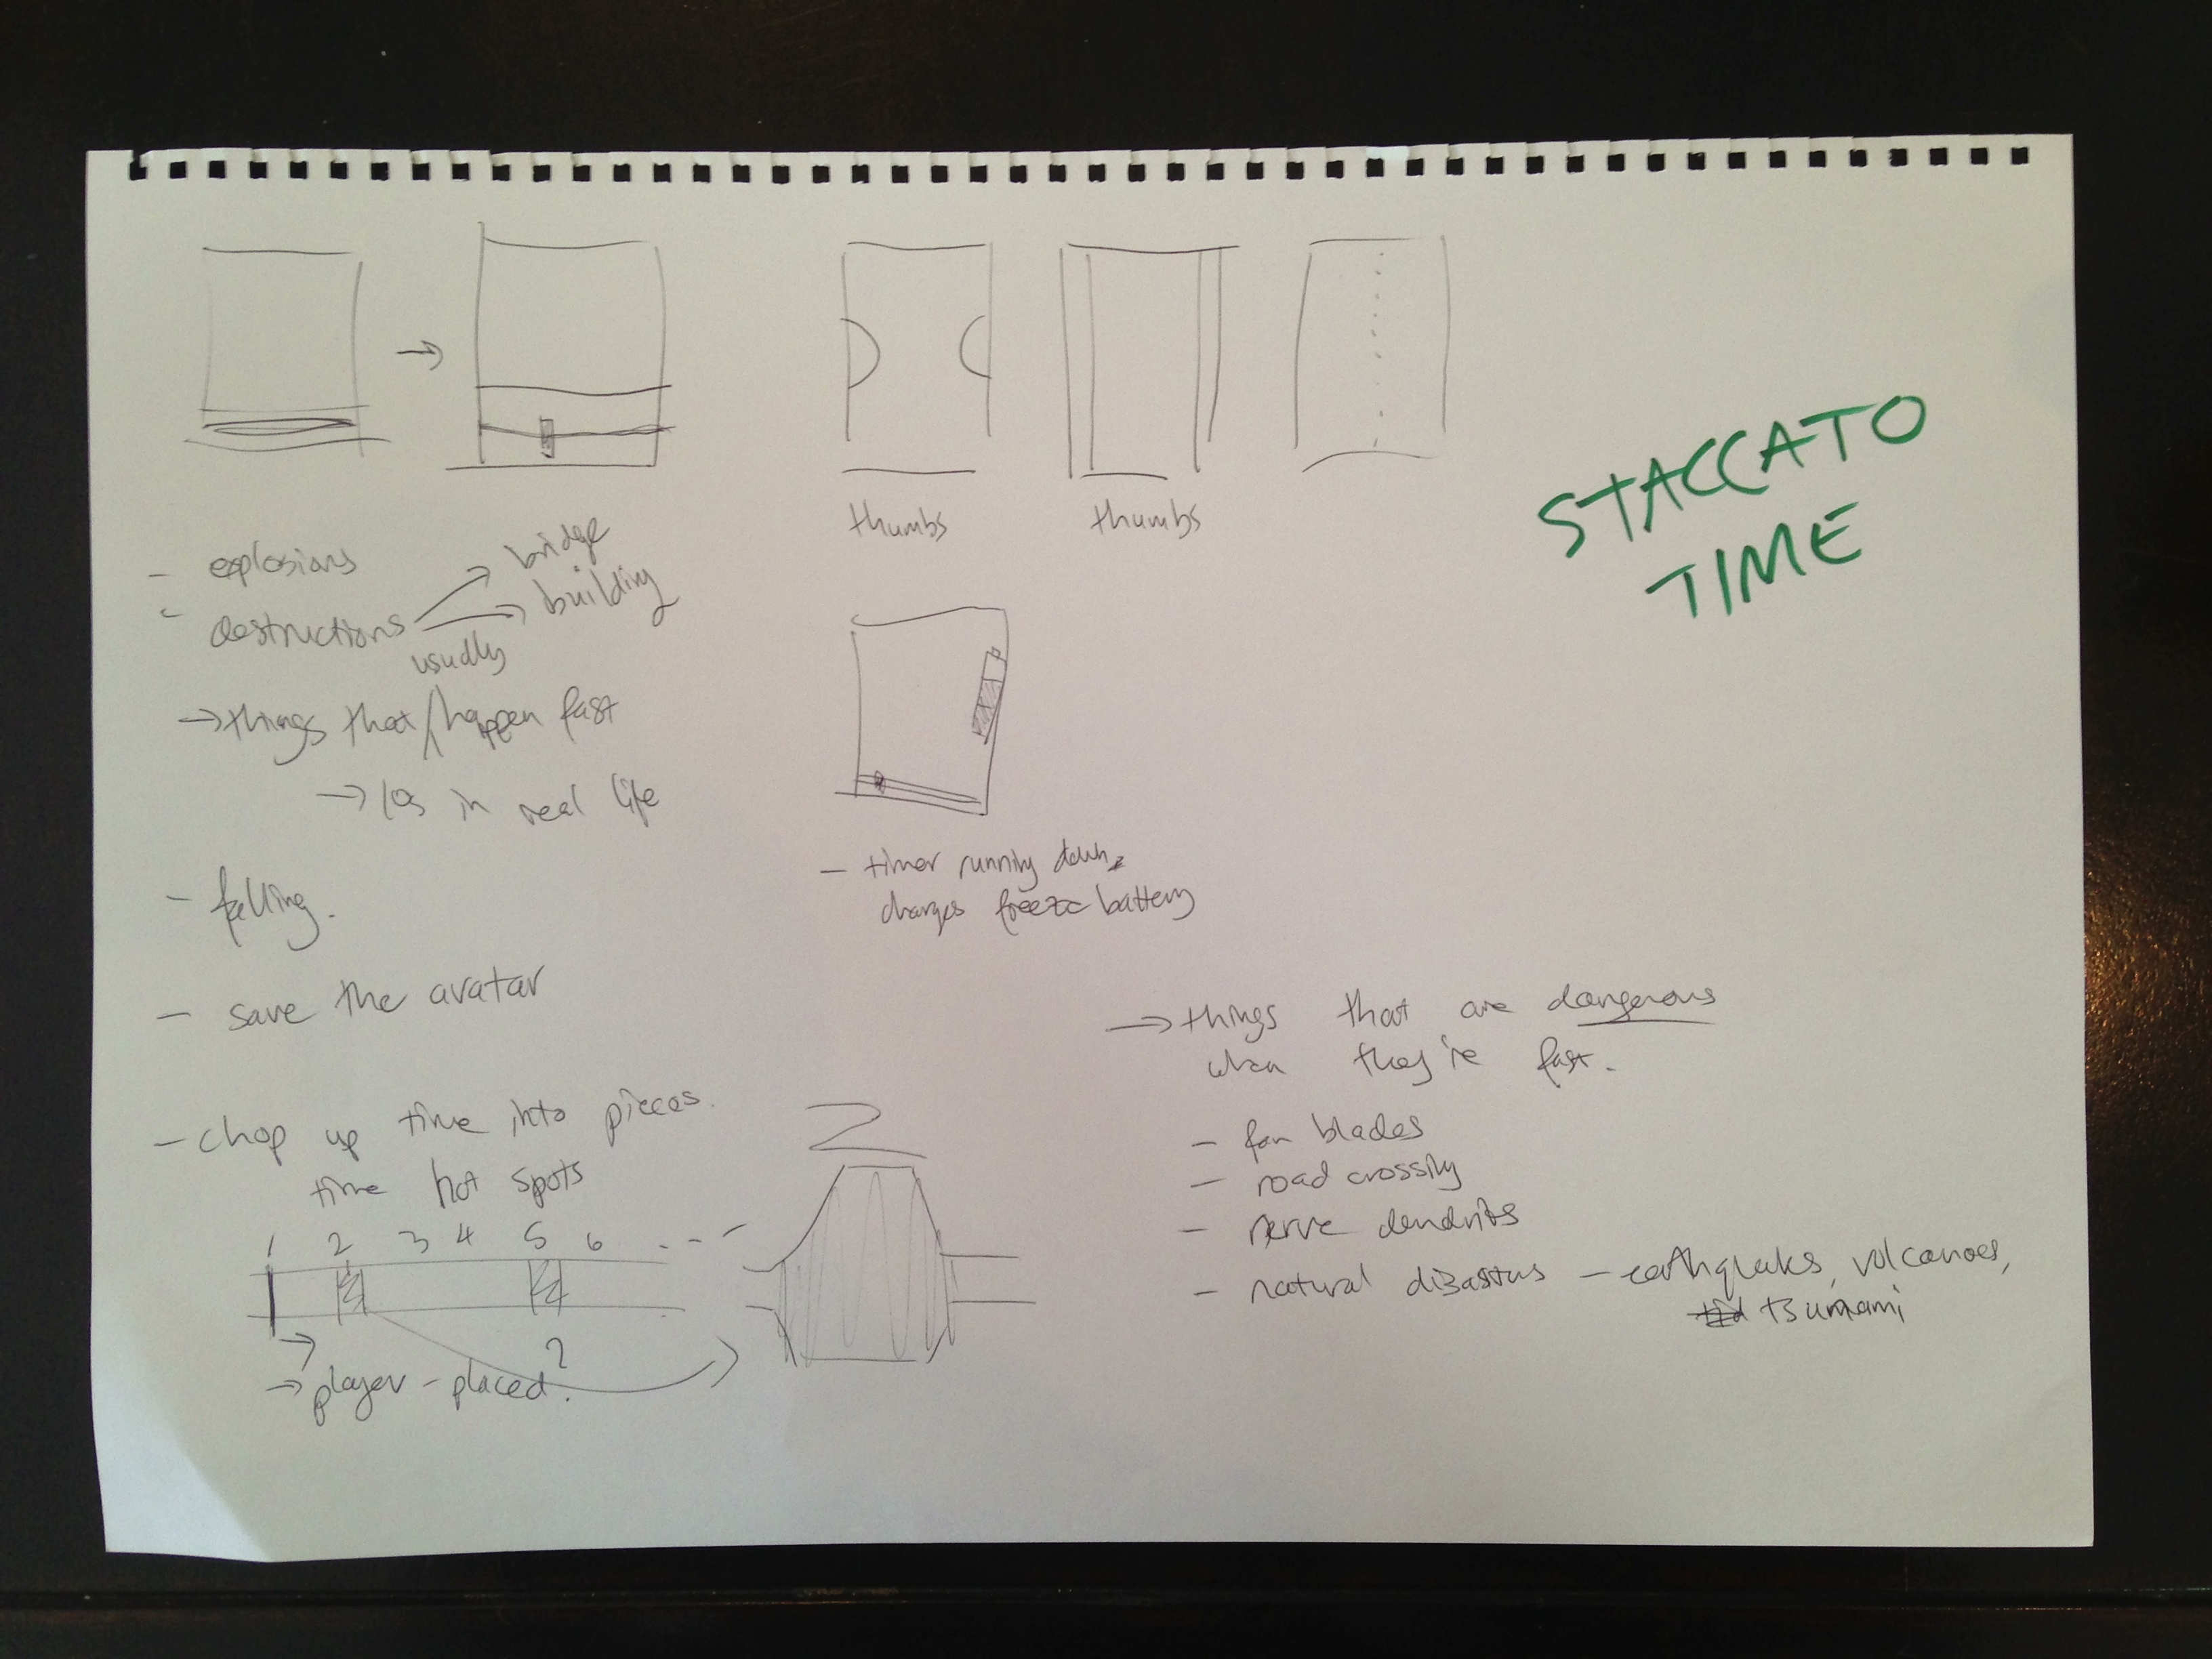 thumbs
thumbs
STACCATO
TIME
- explosions
- destructions
bridge
building
usually
→ things that / happen fast
→ 10s in real life
- falling.
- save the avatar
- timer running down,
charges freeze battery
- chop up time into pieces.
time hot spots
1 2 3 4 5 6 . - -
→ player-placed?
2
→ things that are dangerous
when they're fast.
- fan blades
- road crossing
- nerve dendrits
- natural disasters - earthquakes, volcanoes,
tsunami